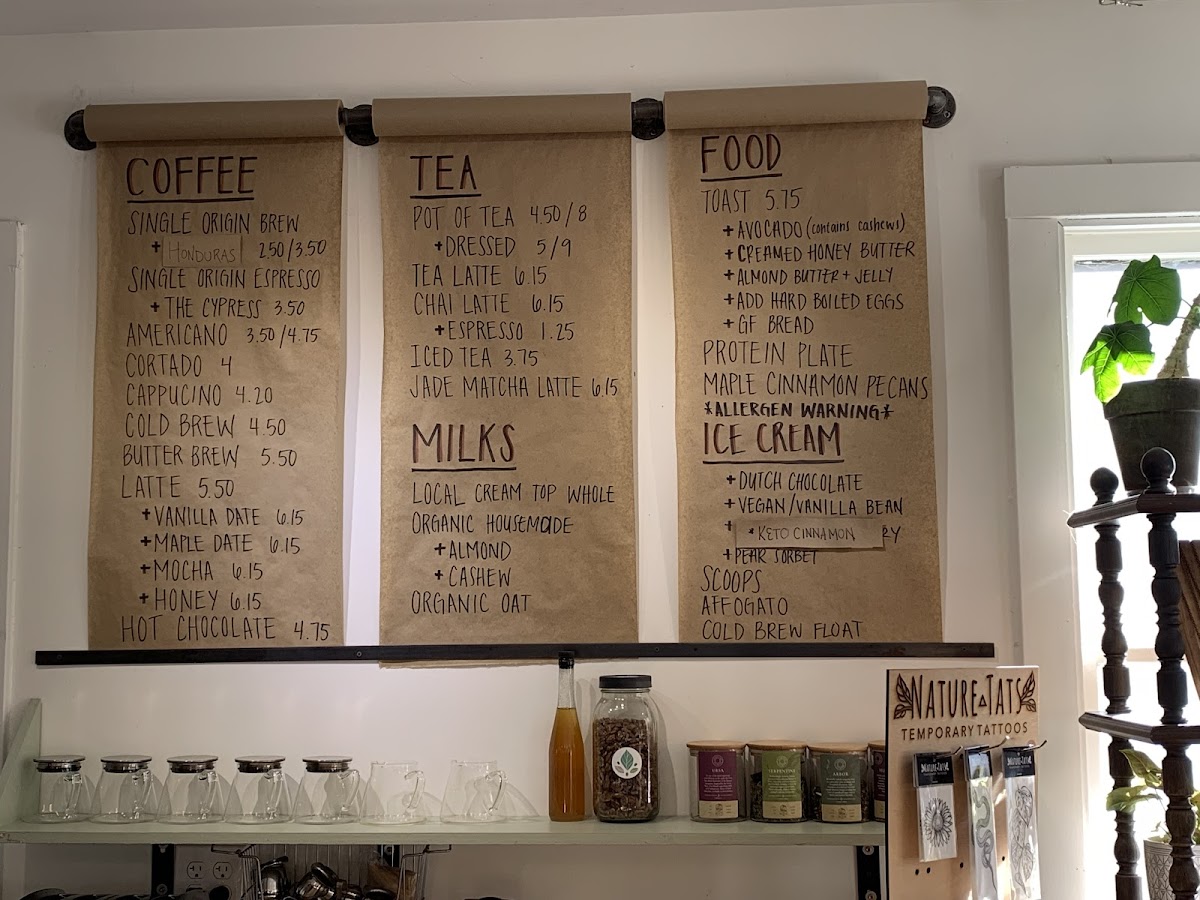 COFFEE
SINGLE ORIGIN BREW
+ HONDURAS 2.50/3.50
SINGLE ORIGIN ESPRESSO
+ THE CYPRESS 3.50
AMERICANO 3.50/4.75
CORTADO 4
CAPPUCINO 4.20
COLD BREW 4.50
BUTTER BREW 5.50
LATTE 5.50
+ VANILLA DATE 6.15
+ MAPLE DATE 6.15
+ MOCHA 6.15
+ HONEY 6.15
HOT CHOCOLATE 4.75
TEA
POT OF TEA 4.50/8
+ DRESSED 5/9
TEA LATTE 6.15
CHAI LATTE 6.15
+ ESPRESSO 1.25
ICED TEA 3.75
JADE MATCHA LATTE 6.15
MILKS
LOCAL CREAM TOP WHOLE
ORGANIC HOUSEMADE
+ ALMOND
+ CASHEW
ORGANIC OAT
FOOD
TOAST 5.75
+ AVOCADO (contains cashews)
+ CREAMED HONEY BUTTER
+ ALMOND BUTTER + JELLY
+ ADD HARD BOILED EGGS
+ GF BREAD
PROTEIN PLATE
MAPLE CINNAMON PECANS
*ALLERGEN WARNING*
ICE CREAM
+ DUTCH CHOCOLATE
+ VEGAN/VANILLA BEAN
+ * KETO CINNAMON RY
+ PEAR SORBET
SCOOPS
AFFOGATO
COLD BREW FLOAT
NATURE TATS
TEMPORARY TATTOOS